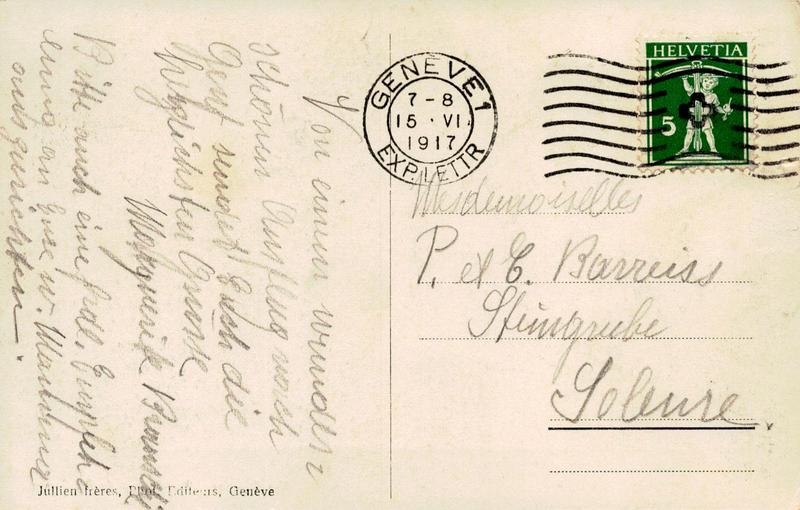 Von einem wunder-
schönen Ausflug nach
Genf sendet Euch die
herzlichsten Grüsse
Marguerite
Bitte auch eine frdl. Empfehl
an Eure w.
auszurichten.
GENÈVE 1
7-8
15 · VI
1917
EXP. LETTR
HELVETIA
5
Mesdemoiselles
P. et E. Barreiss
Steingrube
Soleure.
Jullien frères, Phot. Editeurs, Genève